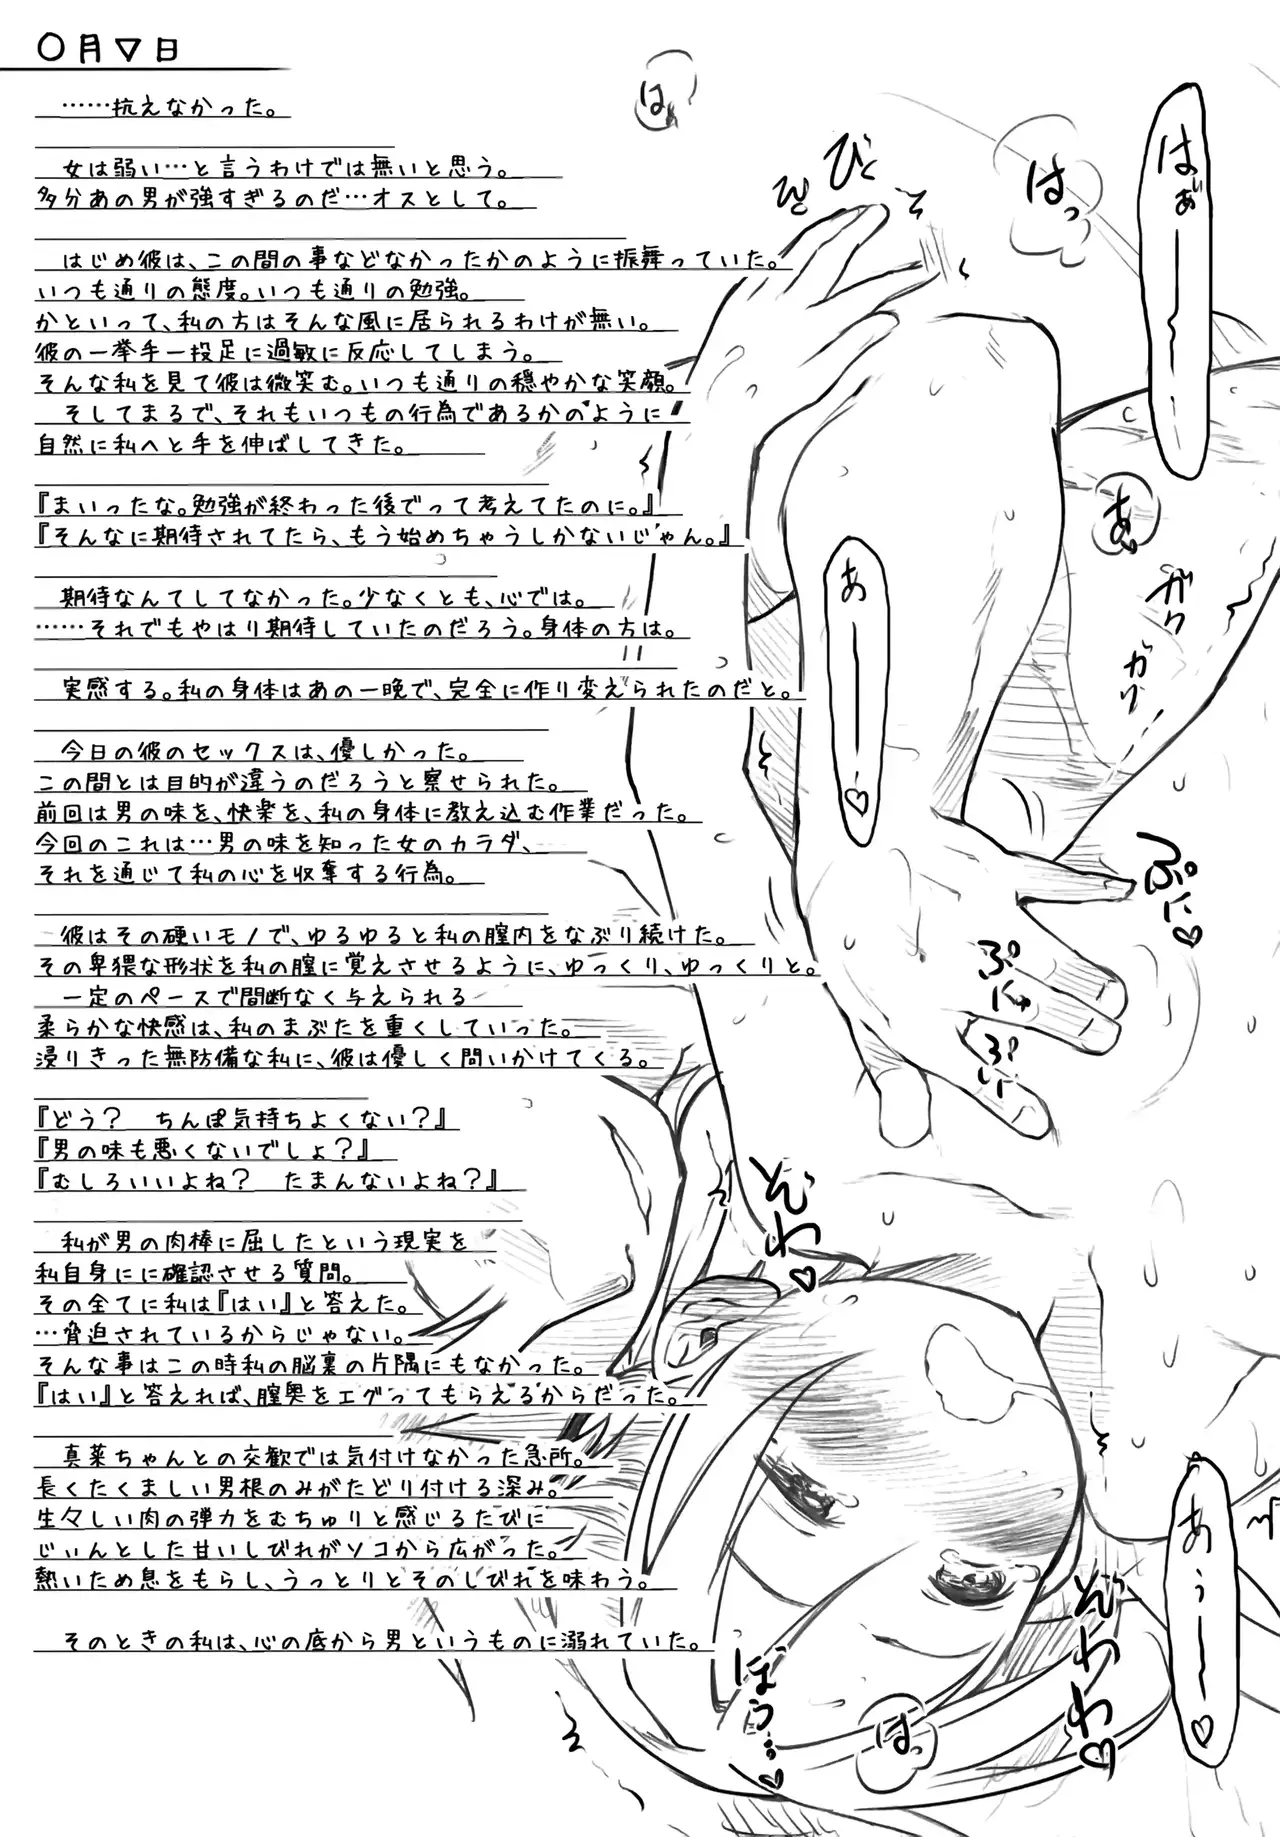 〇月▽日
……抗えなかった。
女は弱い…と言うわけでは無いと思う。
多分あの男が強すぎるのだ…オスとして。
はじめ彼は、この間の事などなかったかのように振舞っていた。
いつも通りの態度。いつも通りの勉強。
かといって、私の方はそんな風に居られるわけが無い。
彼の一挙手一投足に過敏に反応してしまう。
そんな私を見て彼は微笑む。いつも通りの穏やかな笑顔。
そしてまるで、それもいつもの行為であるかのように
自然に私へと手を伸ばしてきた。
『まいったな。勉強が終わった後でって考えてたのに。』
『そんなに期待されてたら、もう始めちゃうしかないじゃん。』
期待なんてしてなかった。少なくとも、心では。
……それでもやはり期待していたのだろう。身体の方は。
実感する。私の身体はあの一晩で、完全に作り変えられたのだと。
今日の彼のセックスは、優しかった。
この間とは目的が違うのだろうと察せられた。
前回は男の味を、快楽を、私の身体に教え込む作業だった。
今回のこれは…男の味を知った女のカラダ、
それを通じて私の心を収奪する行為。
彼はその硬いモノで、ゆるゆると私の膣内をなぶり続けた。
その卑猥な形状を私の膣に覚えさせるように、ゆっくり、ゆっくりと。
一定のペースで間断なく与えられる
柔らかな快感は、私のまぶたを重くしていった。
浸りきった無防備な私に、彼は優しく問いかけてくる。
『どう？　ちんぽ気持ちよくない？』
『男の味も悪くないでしょ？』
『むしろいいよね？　たまんないよね？』
私が男の肉棒に屈したという現実を
私自身にに確認させる質問。
その全てに私は『はい』と答えた。
…脅迫されているからじゃない。
そんな事はこの時私の脳裏の片隅にもなかった。
『はい』と答えれば、膣奥をエグってもらえるからだった。
真菜ちゃんとの交歓では気付けなかった急所。
長くたくましい男根のみがたどり付ける深み。
生々しい肉の弾力をむちゅりと感じるたびに
じぃんとした甘いしびれがソコから広がった。
熱いため息をもらし、うっとりとそのしびれを味わう。
そのときの私は、心の底から男というものに溺れていた。
は
びく
はっ
はぁーー
あ♡
ガク
ガク
あーー♡
ぷに♡
ぷにゅ
ぷい
ぞわ♡
ぞわわ♡
あぅーー♡
ぽぅ…♡
はっ